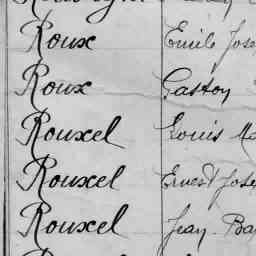 Roux Emile Jos
Roux Gaston
Rouxel Louis Ma
Rouxel Ernest Jose
Rouxel Jean-Ba